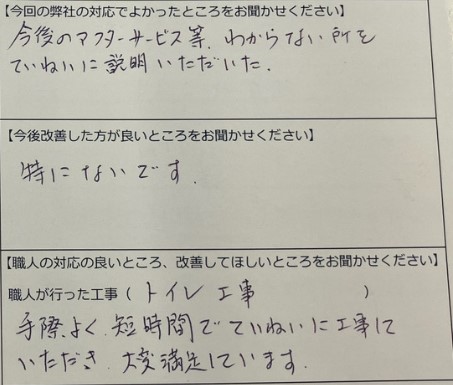 【今回の弊社の対応でよかったところをお聞かせください】
今後のアフターサービス等、わからない所を
ていねいに説明いただいた.
【今後改善した方が良いところをお聞かせください】
特にないです.
【職人の対応の良いところ、改善してほしいところをお聞かせください】
職人が行った工事（トイレ工事）
手際よく、短時間でていねいに工事して
いただき、大変満足しています.